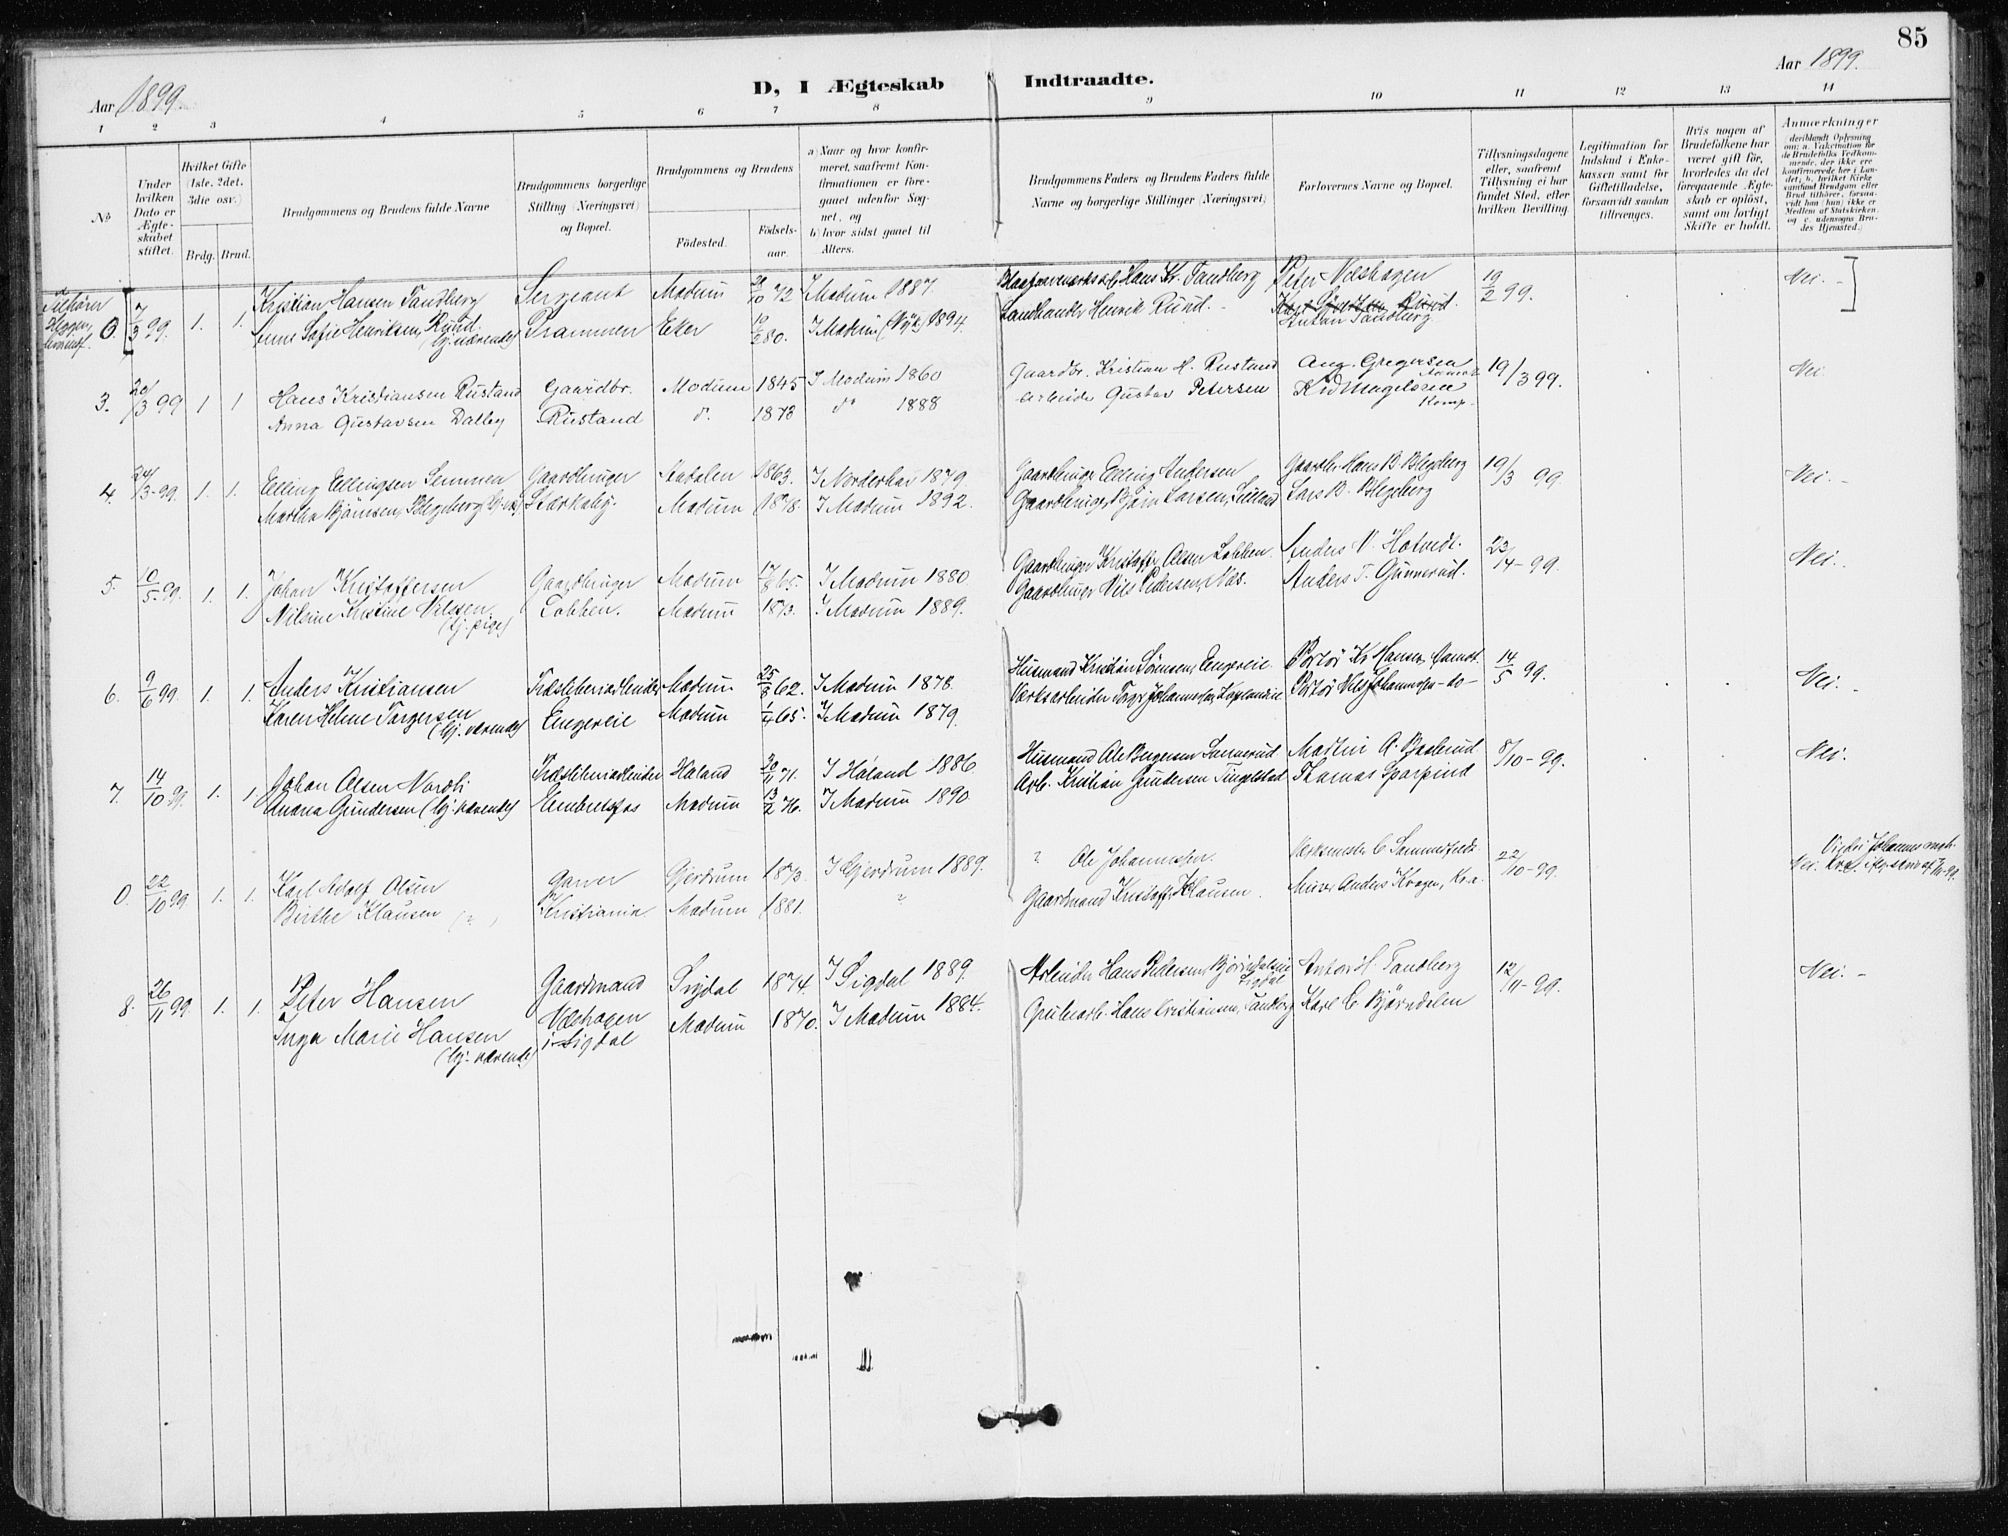 85
Aar 1899.
D, I Ægteskab Indtraadte.
Aar 1899.
1 2 3 4 5 6 7 8 9 10 11 12 13 14
No
Under hvilken Dato er Ægteskabet stiftet.
Hvilket Gifte (1ste, 2det, 3die osv.)
Brdg. Brud.
Brudgommens og Brudens fulde Navne
Brudgommens borgerlige Stilling (Næringsvei) og Bopæl.
Brudgommens og Brudens
Födested. Födselsaar.
a) Naar og hvor konfirmeret, saafremt Konfirmationen er foregaaet udenfor Sognet, og
b) hvor sidst gaaet til Alters.
Brudgommens Faders og Brudens Faders fulde Navne og borgerlige Stillinger (Næringsvei)
Forlovernes Navne og Bopæl.
Tillysningsdagene eller, saafremt Tillysning ei har fundet Sted, efter hvilken Bevilling.
Legitimation for Indskud i Enkekassen samt for Giftetilladelse, forsaavidt saadan tiltrænges.
Hvis nogen af Brudefolkene har været gift för, hvorledes da det foregaaende Ægteskab er oplöst, samt om lovligt Skifte er holdt.
Anmærkninger
(deriblandt Oplysning om: a. Vakcination for de Brudefolks Vedkommende, der ikke ere konfirmerede her i Landet, b. hvilket Kirkesamfund Brudgom eller Brud tilhörer, forsaavidt han (hun) ikke er Medlem af Statskirken, og c. udensogns Brudes Hjemsted.)
Tilhører
0. 7/3 99. 1. 1. Kristian Hansen Tandberg Sergeant Modum 20/10 72 I Modum 1887. Hans Kr. Tandberg Peter Næshagen 19/2 99. Nei.
Anne Sofie Henriksen Rund (hj. værende) Drammen Eker 80. I Modum 1894. Landhandler Henrik Rund. Anton Tandberg
3. 20/3 99 1 1 Hans Kristiansen Rustand Gaardbr. Modum 1845 I Modum 1860 Gaardbr. Kristian H. Rustand Aug. Gregersen 19/3 99. Nei
Anna Gustavsen Dalby Rustand do. 1873 do 1888 Arbeider Gustav Petersen Komp.
4. 24/3-99. 1. 1. Elling Ellingsen Semmen Gaardbruger 1863. I Norderhov 1879 Gaardbruger Elling Andersen Gaardbr. Hans B. Blegeberg 19/3 99. Nei.
Martha Bjørnsen, Blegeberg Modum 1878. I Modum 1892. Gaardbruger Bjørn Larsen, Lars B. Blegeberg
5. 10/5-99. 1. 1. Johan Kristoffersen Gaardbruger Modum 17/8 65. I Modum 1880. Gaardbruger Kristoffer Olsen Lobben. Anders N. Hotvedt. 23/4-99. Nei.
Nilsine Kristine Nilssen. (hj. pige) Lobben. Modum 1873. I Modum 1889. Gaardbruger Nils Pedersen, Næs. Anders T. Gunnerud.
6. 9/6 99. 1. 1. Anders Kristiansen Træsliberiarbeider Modum 25/8 62. I Modum 1878. Husmand Kristian Sørensen, Engereie Portør Kr. Hansen, 14/5 99. Nei.
Karen Helene Torgersen (hj. værende) Engereie Modum 1/4 65. I Modum 1879. Verksarbeider Torger Johannesen, Portør Nils Johannesen -do-
7. 14/10 99. 1. 1. Johan Olsen Nordli Træsliberiarbeider Høland 20/11 71. I Høland 1886 Husmand Ole Borgersen Martin A. Braterud 8/10-99. Nei.
Gundersen (hj. værende) Embretsfos Modum 13/2 76. I Modum 1890. Arb. Kristian Gundersen Tingelstad Thomas
0. 22/10 99 1. 1. Karl Adolf Olsen Garver Gjerdrum 1873. I Gjerdrum 1889. " Ole Johannesen. Verksmester C. Sommerfeldt 22/10-99. Nei.
Birthe Klausen Kristiania. Modum 1881. " Gaardmand Kristoffer Klausen. Murer Anders Kragen, Kr.a.
8. 26/11 99. 1. 1. Peter Hansen Gaardmand Sigdal 1874. I Sigdal 1889. Arbeider Hans Pedersen, Sigdal Anton H. Tandberg 12/11-99. Nei.
Inga Marie Hansen (hj. værende) Næshagen i Sigdal Modum 1870. I Modum 1884. Grubearb. Hans Kristiansen, Tandberg Karl C. Bjørndalen